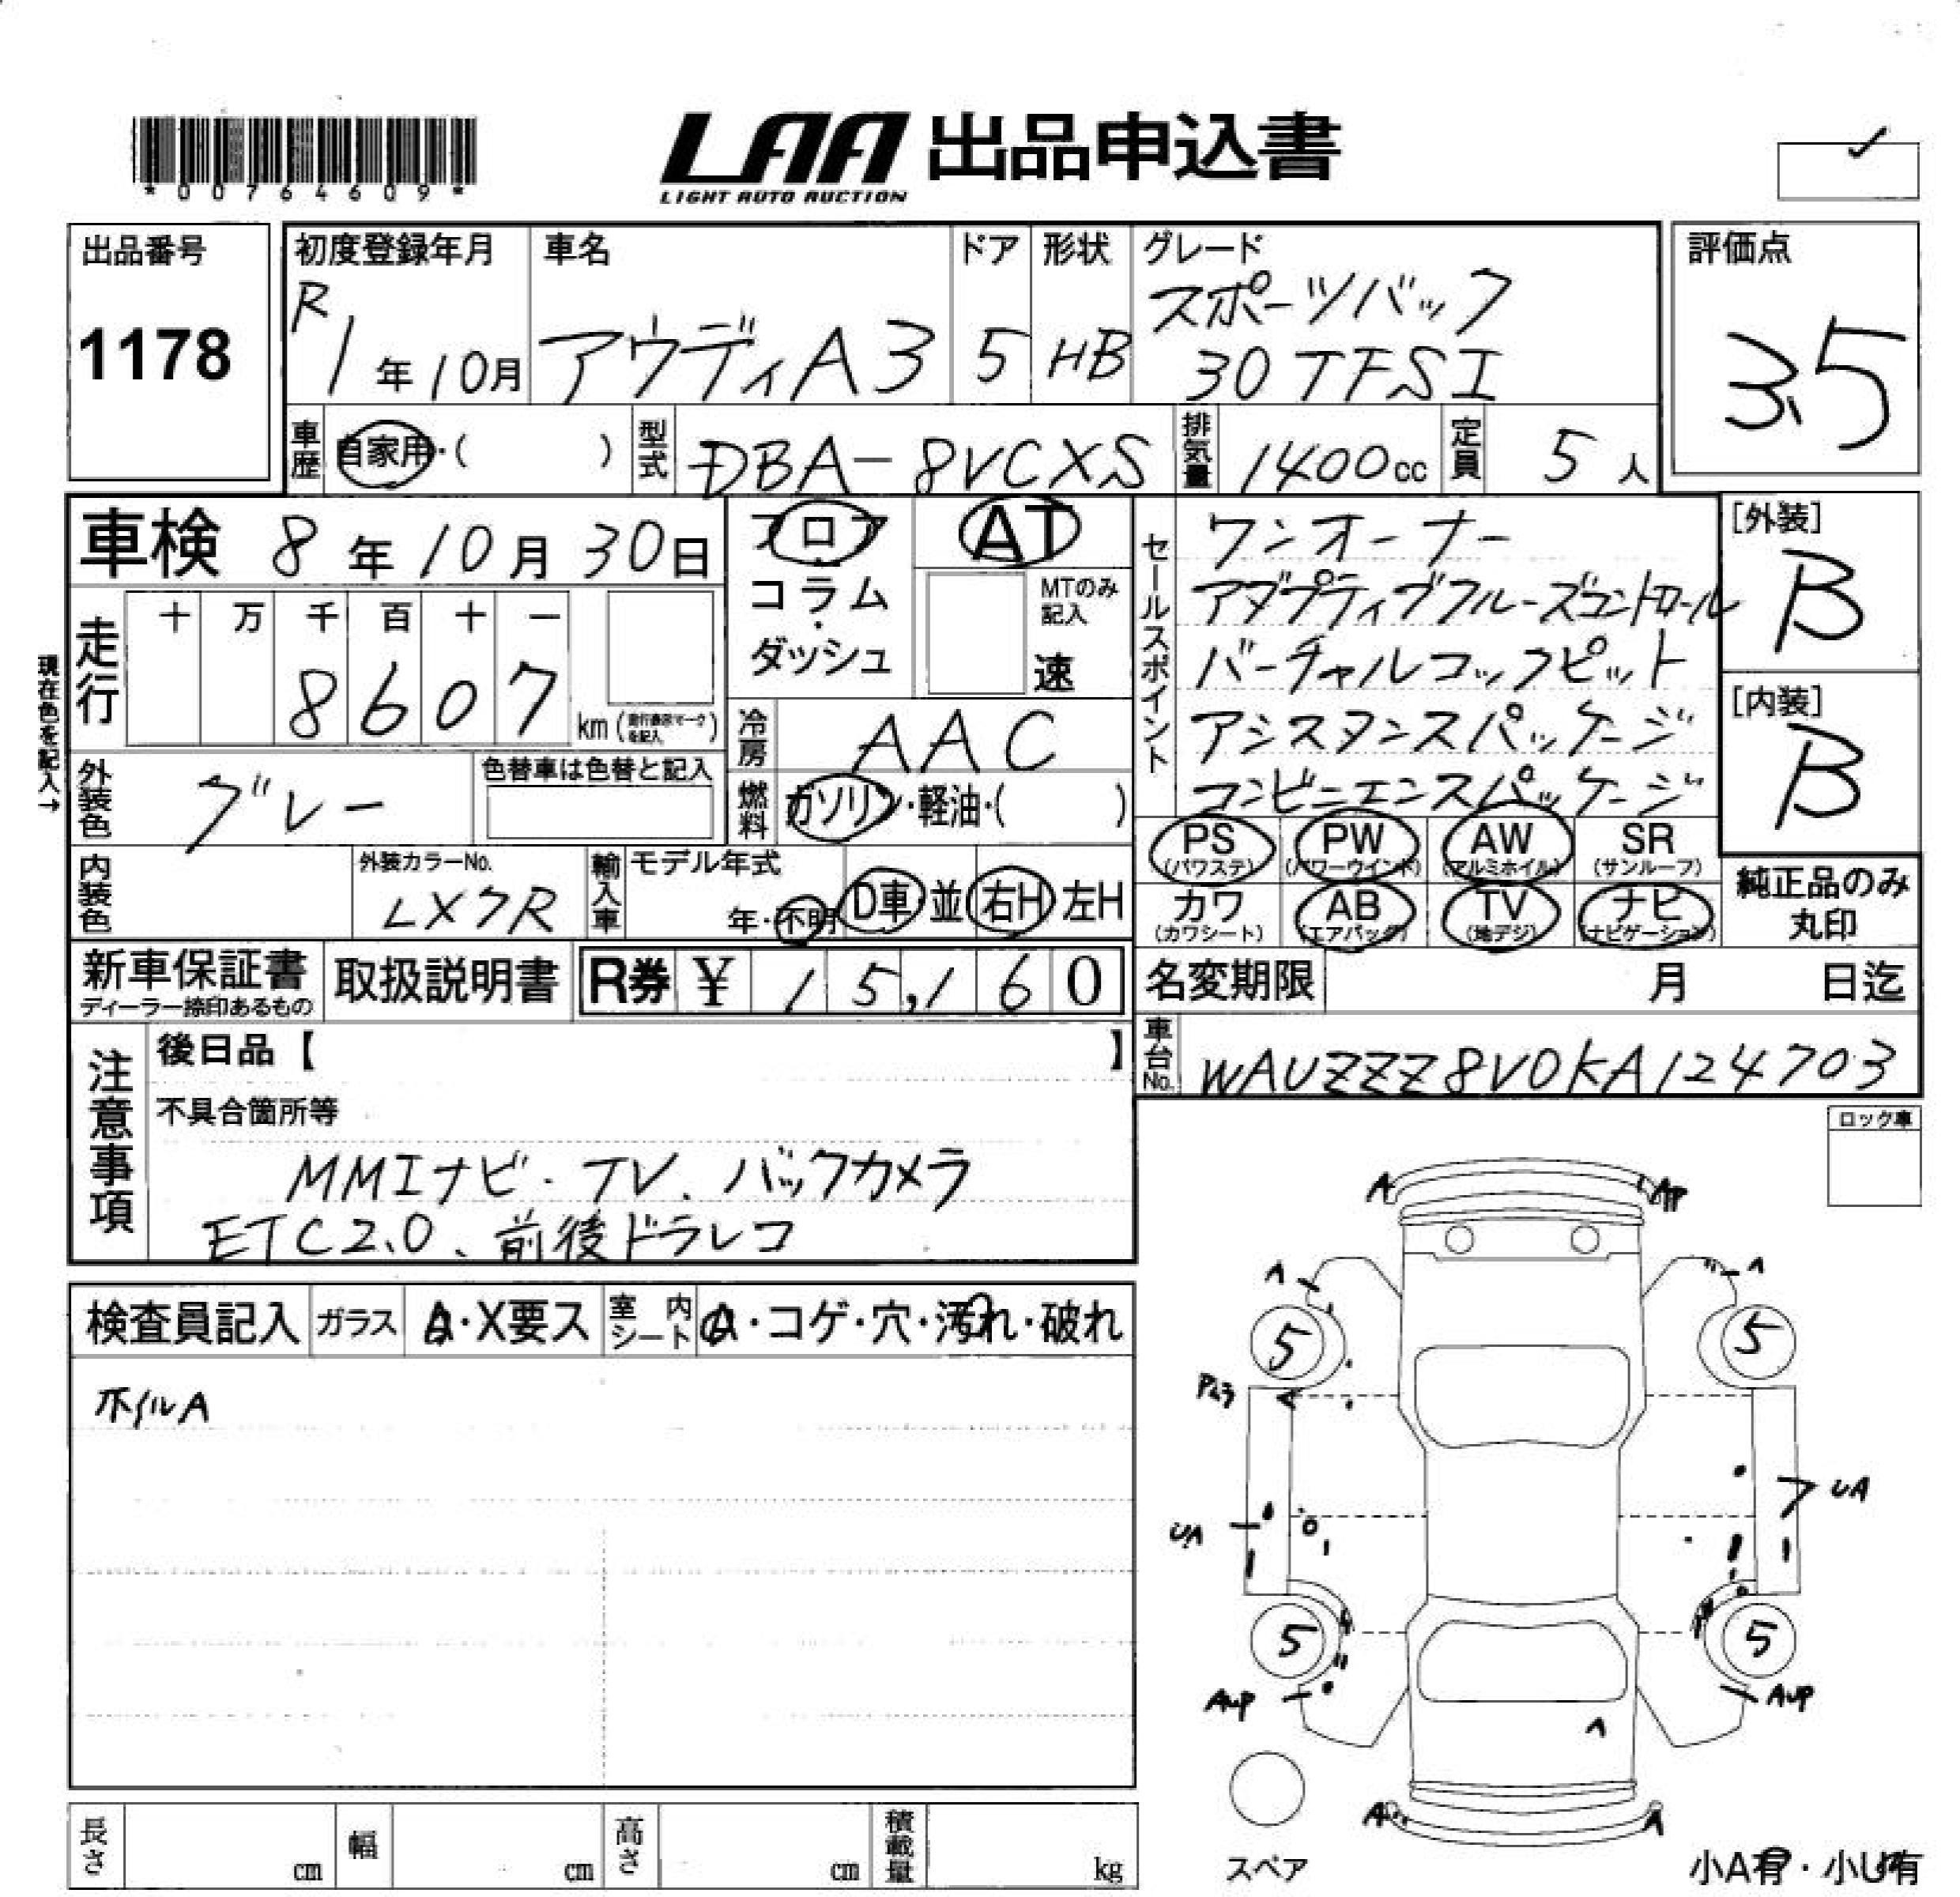 *00764609*
LAA 出品申込書
LIGHT AUTO AUCTION
出品番号
1178
初度登録年月
R1年10月
車名
アウディA3
ドア
5
形状
HB
グレード
スポーツバック
30 TFSI
評価点
3.5
車歴
自家用・( )
型式
DBA-8VCXS
排気量
1400cc
定員
5人
車検 8年10月30日
走行
十 万 千 百 十 一
8607
km(走行表示マークを記入)
現在色を記入→
フロア
コラム
ダッシュ
AT
MTのみ記入
速
冷房
AAC
燃料
ガソリン・軽油・( )
外装色
グレー
色替車は色替と記入
内装色
外装カラーNo.
LX7R
輸入車
モデル年式
年・不明
D車・並
右H・左H
セールスポイント
ワンオーナー
アダプティブクルーズコントロール
バーチャルコックピット
アシスタンスパッケージ
コンビニエンスパッケージ
[外装]
B
[内装]
B
PS (パワステ)
PW (パワーウインド)
AW (アルミホイル)
SR (サンルーフ)
カワ (カワシート)
AB (エアバッグ)
TV (地デジ)
ナビ (ナビゲーション)
純正品のみ丸印
新車保証書
ディーラー捺印あるもの
取扱説明書
R券 ¥ 15,160
名変期限
月 日迄
車台No.
WAUZZZ8V0KA124703
注意事項
後日品【 】
不具合箇所等
MMIナビ.TV.バックカメラ
ETC2.0、前後ドラレコ
ロック車
検査員記入
ガラス
A・X要ス
室内シート
A・コゲ・穴・汚れ・破れ
ホイルA
A
AP
A
A
5
5
Pムラ
UA
UA
5
5
AUP
AUP
A
A
A
スペア
小A有・小U有
長さ cm
幅 cm
高さ cm
積載量 kg